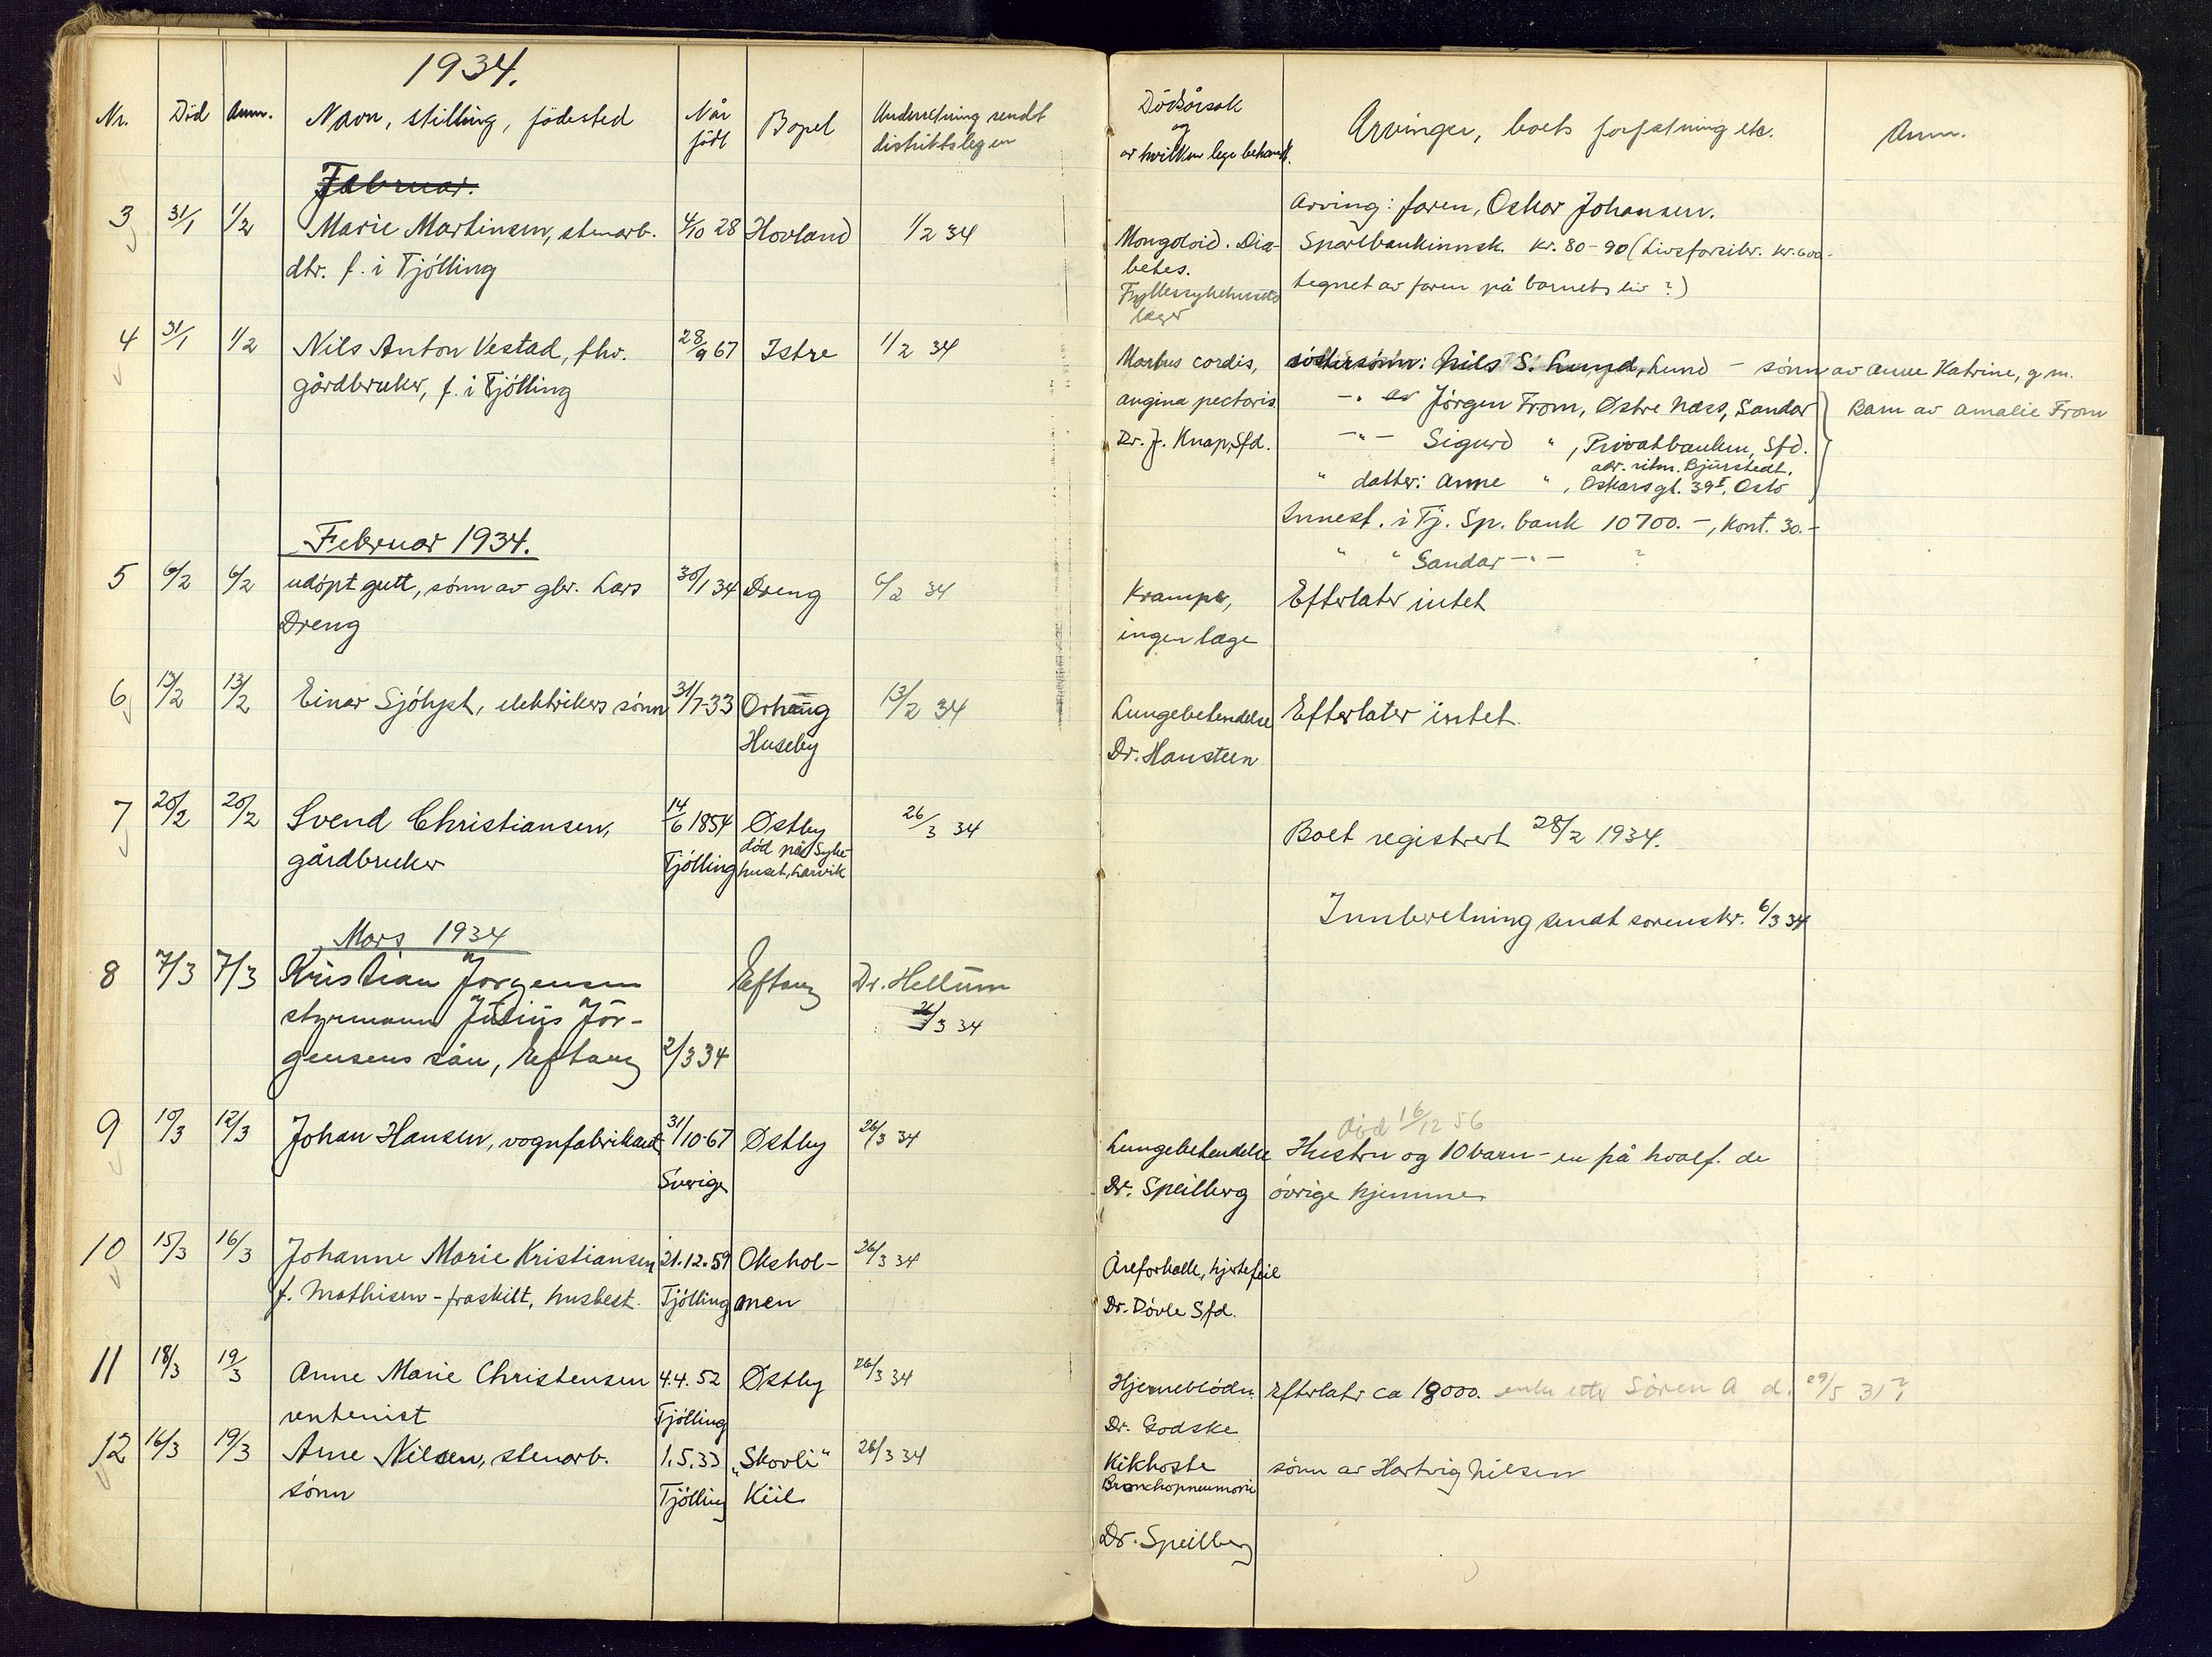 1934.
Nr. Död Anm. Navn, stilling, födested Når född Bopel Underretning sendt distriktslegen
Februar.
3 31/1 1/2 Marie Martinsen, stenarb. 4/10 28 Hovland 1/2 34
dtr. f. i Tjölling
4 31/1 1/2 Nils Anton Vestad, fhv. 28/9 67 Istre 1/2 34
gårdbruker, f. i Tjölling
Februar 1934.
5 6/2 6/2 udöpt gutt, sönn av gbr. Lars 30/1 34 Dreng 6/2 34
Dreng
6 13/2 13/2 Einar Sjölyst, elektrikers sönn 31/7-33 Orhaug 13/2 34
Huseby
7 20/2 20/2 Svend Christiansen, 14/6 1854 Østby 26/3 34
gårdbruker Tjölling död på Syke-
huset, Larvik
Mars 1934
8 7/3 7/3 Kristian Jörgensen Eftang Dr. Hellum
styrmann Julius Jör- 26/3 34
gensens sön, Eftang 2/3 34
9 10/3 12/3 Johan Hansen, vognfabrikant 31/10-67 Østby 26/3 34
Sverige
10 15/3 16/3 Johanne Marie Kristiansen 21.12.59 Okshol- 26/3 34
f. Mathisen - fraskilt, husbest. Tjölling men
11 18/3 19/3 Anne Marie Christensen 4.4.52 Østby 26/3 34
rentenist Tjölling
12 16/3 19/3 Arne Nilsen, stenarb. 1.5.33 „Skovli“ 26/3 34
sönn Tjölling Kiil
Dödsårsak
og
av hvilken lege behandl. Arvinger, boets forfatning etc. Anm.
Arving: faren, Oskar Johansen.
Mongoloid. Dia- Sparebankinnsk. kr. 80-90 (Livsforsikr. kr. 600.-
betes. tegnet av faren på barnets liv ?)
Fylkessykehusets
læger
Morbus cordis, söstersönn: Nils S. Lund, Lund - sönn av Anne Katrine, g m.
angina pectoris. -"- av Jörgen From, Østre Næss, Sandar Barn av Amalie From
Dr. J. Knap, Sfd. -"- Sigurd " , Privatbanken, Sfd.
adr. ritm. Bjürstedt,
" datter: Anne " , Oskarsgt. 39 I, Oslo
Innest. i Tj. Sp. bank 10700.-, kont. 30.-
" " Sandar -"- ?
Krampe, Efterlater intet
ingen læge
Lungebetendelse Efterlater intet.
Dr. Hansteen
Boet registrert 28/2 1934.
Innberetning sendt sorenskr. 6/3 34
Död 16/12 56
Lungebetendelse Hustru og 10 barn - en på hvalf. de
Dr. Speilberg övrige hjemme
Åreforkalk, hjertefeil
Dr. Dövle Sfd.
Hjerneblödn. Efterlater ca 18000. enke etter Sören A d. 29/5 31?
Dr. Godske
Kikhoste sönn av Hartvig Nilsen
Bronchopneumoni
Dr. Speilberg